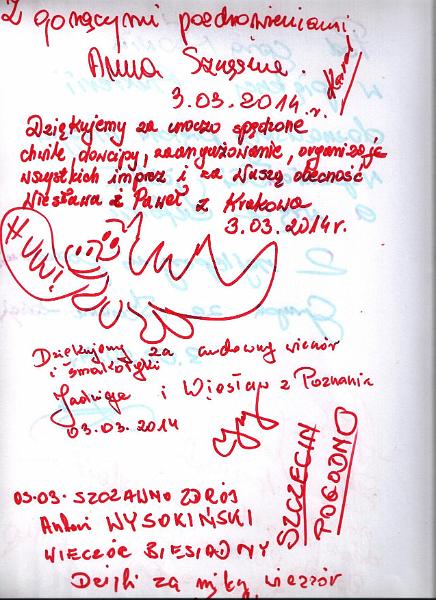 Z gorącymi pozdrowieniami
Anna
3.03.2014 r.
Dziękujemy za uroczo spędzone
chwile, dowcipy, zaangażowanie, organizację
wszystkich imprez i za Waszą obecność
Wiesława & Paweł z Krakowa
3.03.2014r.
# UW!
Dziękujemy za cudowny wieczór
i smakołyki
Jadwiga i Wiesław z Poznania
03.03.2014
SZCZECIN
POGODNO
03.03. SZCZAWNO ZDRÓJ
Antoni WYSOKIŃSKI
WIECZÓR BIESIADNY
Dzięki za miły wieczór